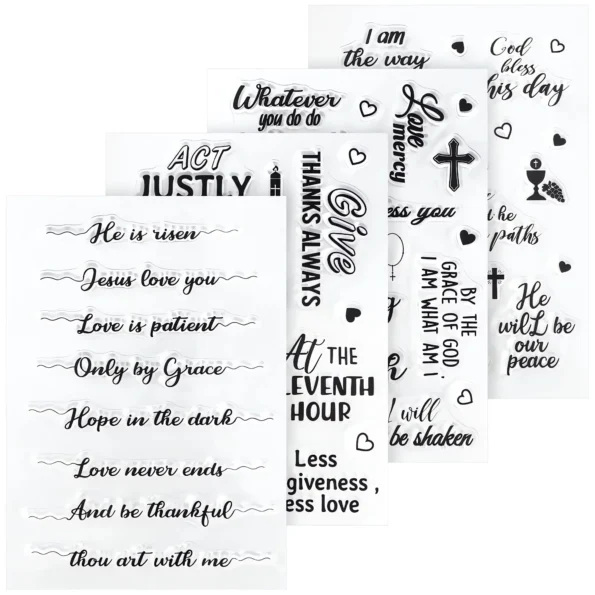 He is risen
Jesus love you
Love is patient
Only by Grace
Hope in the dark
Love never ends
And be thankful
thou art with me
ACT
JUSTLY
Give
THANKS ALWAYS
At THE
LEVENTH
HOUR
Less
giveness ,
ess love
Whatever
you do do
Love
mercy
ess you
BY THE
GRACE OF GOD ,
I AM WHAT AM I
I will
be shaken
I am
the way
God
bless
his day
he
paths
He
will be
our
peace